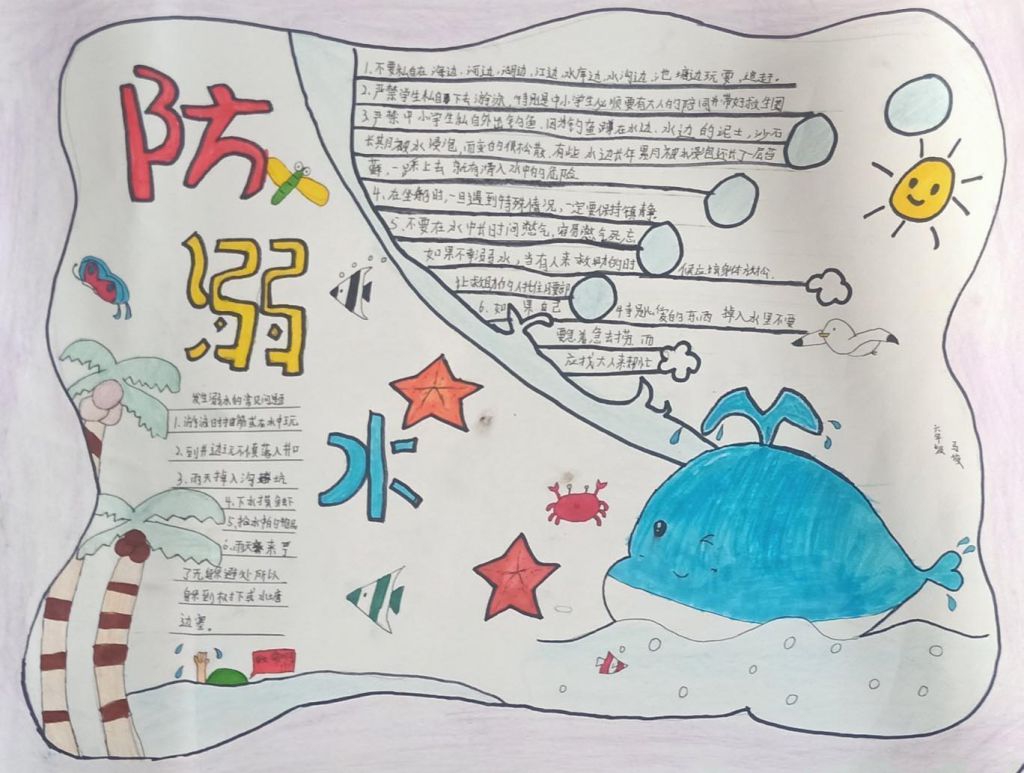 防
溺
水
1.不要私自在海边,河边,湖边,江边,水库边,水沟边,池塘边玩耍,追赶.
2.严禁学生私自下去游泳,特别是中小学生必须要有大人的陪同并带好救生圈
3.严禁中小学生私自外出钓鱼,因为钓鱼蹲在水边,水边的泥土,沙石
长期被水浸泡,而变的很松散,有些水边长年累月被水浸泡还长了一层苔
藓,一踩上去就有滑入水中的危险
4.在坐船时,一旦遇到特殊情况,一定要保持镇静
5.不要在水中长时间憋气,容易憋气死亡
如果不幸溺水,当有人来救助的时候应将身体放松,
让救助的人托住腰部
6.如果自己特别心爱的东西掉入水里不要
要急着急去捞,而
应找大人来帮忙
发生溺水的常见问题
1.游泳时抽筋或在水中玩
2.到井边玩不慎落入井口
3.雨天掉入沟坑
4.下水摸鱼虾
5.
6.雨天来了
了无躲避处所以
躲到树下或水塘
边
六年级